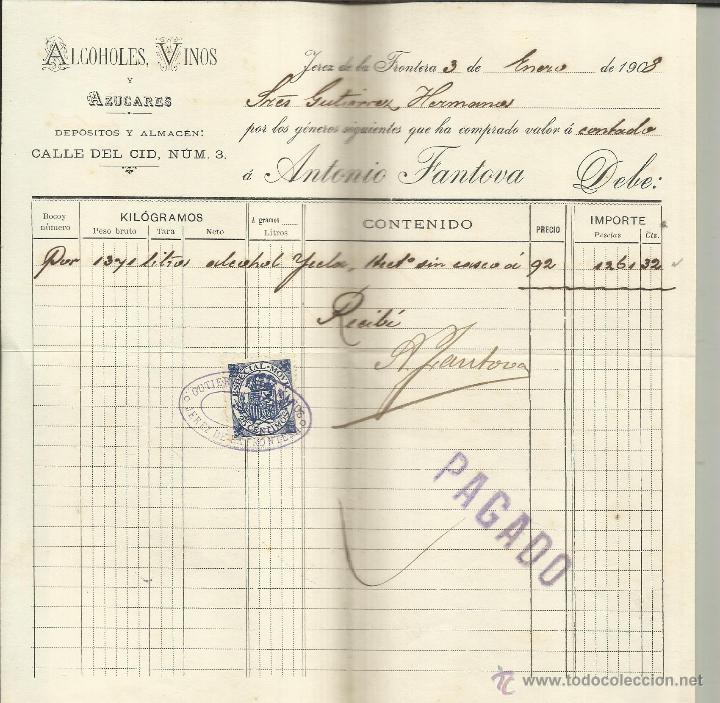 Alcoholes, Vinos
y
Azucares
Depósitos y Almacén:
Calle del Cid, Núm. 3.
Jerez de la Frontera 3 de Enero de 1908
Sres Gutierrez Hermanos
por los géneros siguientes que ha comprado valor á contado
á Antonio Fantova Debe:
Bocoy número KILÓGRAMOS Peso bruto Tara Neto á gramos Litros CONTENIDO PRECIO IMPORTE Pesetas Cts.
Por 1371 litros alcohol Yecla, Hecto sin casco á 92 1261 32
Recibí
A. Fantova
ESPECIAL MOVIL
CENTIMOS
GUTIER
JEREZ DE LA FRONTERA
PAGADO
tc www.todocoleccion.net